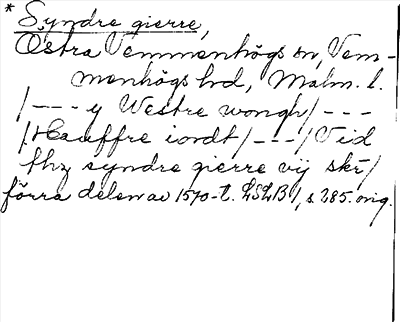 * Syndre gierre,
Östra Vemmenhögs sn, Vem-
menhögs hd, Malm. l.
/--- y Westre wongh/---
/Hauffre iordt/---/Vid
thz syndre gierre vij skr/
förra delen av 1570-t. LSLB 1, s. 285. orig.